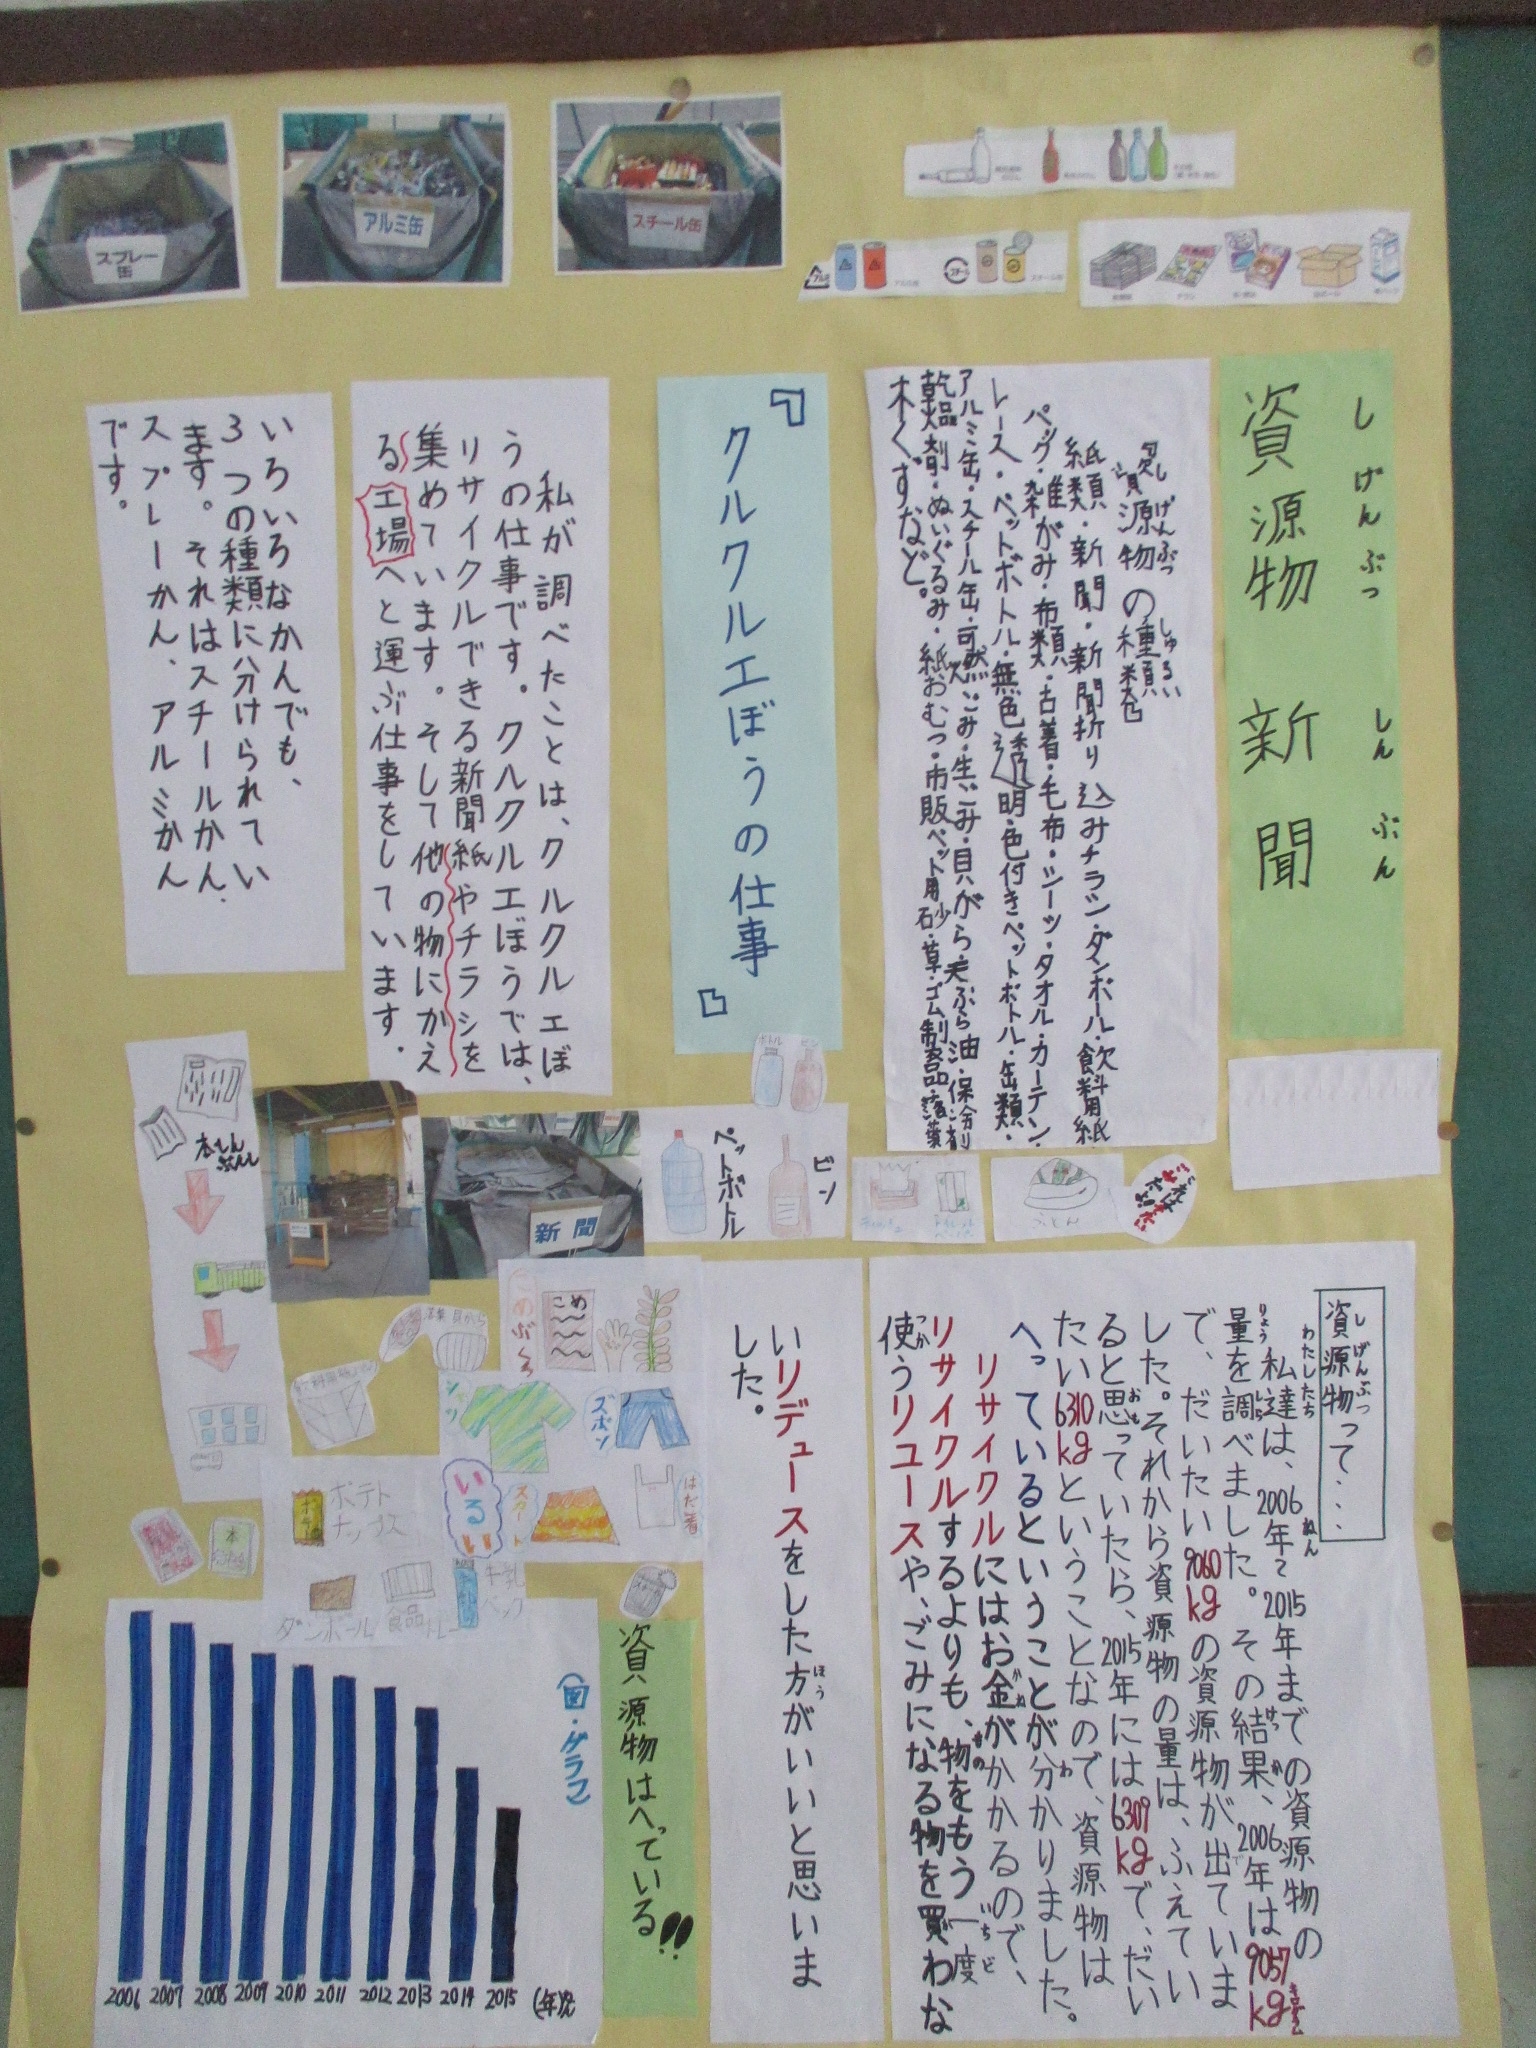 資源物新聞
しげんぶつ しんぶん
資源物の種類
しげんぶつ しゅるい
紙類・新聞・新聞折り込みチラシ・ダンボール・飲料用紙
パック・雑がみ・布類・古着・毛布・シーツ・タオル・カーテン・
レース・ペットボトル・無色透明・色付きペットボトル・缶類・
アルミ缶・スチール缶・可燃ごみ・生ごみ・貝がら・天ぷら油・保冷剤
乾燥剤・ぬいぐるみ・紙おむつ・市販ペット用砂・草・ゴム製品・落葉
木くずなど。
『クルクルエぼうの仕事』
私が調べたことは、クルクルエぼ
うの仕事です。クルクルエぼうでは、
リサイクルできる新聞紙やチラシを
集めています。そして他の物にかえ
る工場へと運ぶ仕事をしています。
いろいろなかんでも、
3つの種類に分けられてい
ます。それはスチールかん、
スプレーかん、アルミかん
です。
スプレー
缶
アルミ缶
スチール缶
アルミ
スチール
資源物って・・・
しげんぶつ
私達は、2006年~2015年までの資源物の
わたしたち ねん
量を調べました。その結果、2006年は9057kg
りょう しら けっか
で、だいたい9060kgの資源物が出ていま
した。それから資源物の量は、ふえてい
ると思っていたら、2015年には6309kgで、だい
おも
たい6310kgということなので、資源物は
へっているということが分かりました。
リサイクルにはお金がかかるので、
リサイクルするよりも、物をもう一度
もの いちど
使うリユースや、ごみになる物を買わな
つか
いリデュースをした方がいいと思いま
ほう
した。
資源物はへっている!!
(図・グラフ)
2006 2007 2008 2009 2010 2011 2012 2013 2014 2015
新聞
ペットボトル
ビン
ボトル
ビン
ふとん
こめぶくろ
こめ
シャツ
ズボン
スカート
はだ着
いるい
ポテト
チップス
ダンボール
食品トレー
牛乳
パック
本